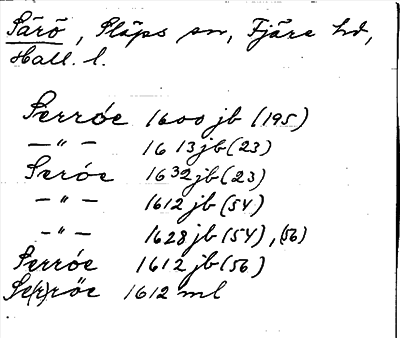 Särö, Släps sn, Fjäre hd,
Hall. l.
Serróe 1600 jb (195)
— " — 1613 jb (23)
Seróe 1632 jb (23)
— " — 1612 jb (54)
— " — 1628 jb (54), (56)
Serróe 1612 jb (56)
Se(r)röe 1612 ml